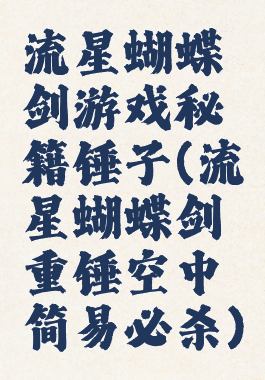 流星蝴蝶
剑游戏秘
籍锤子(流
星蝴蝶剑
重锤空中
简易必杀)